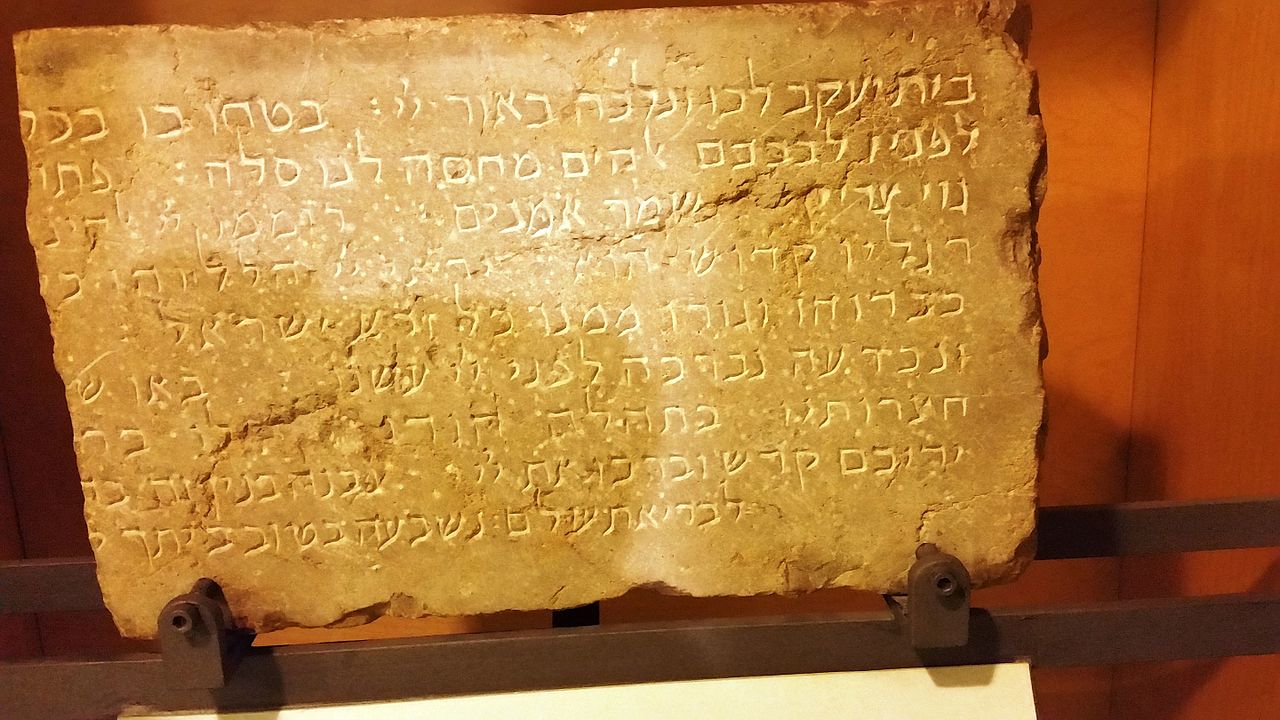 בית יעקב לכו ונלכה באור יי : בטחו בו בכל
לפניו לבבכם אלהים מחסה לנו סלה : פתחו
גוי צדיק שמר אמנים רוממו יי אלהינו
רגליו קדוש הוא יראי יי הללוהו כל
כבדוהו וגורו ממנו כל זרע ישראל
ונכרעה נברכה לפני יי עשנו : באו
חצרותיו בתהלה הודו
ידיכם קדש וברכו את יי
לבריאת עולם נשבעה בטוב ביתך